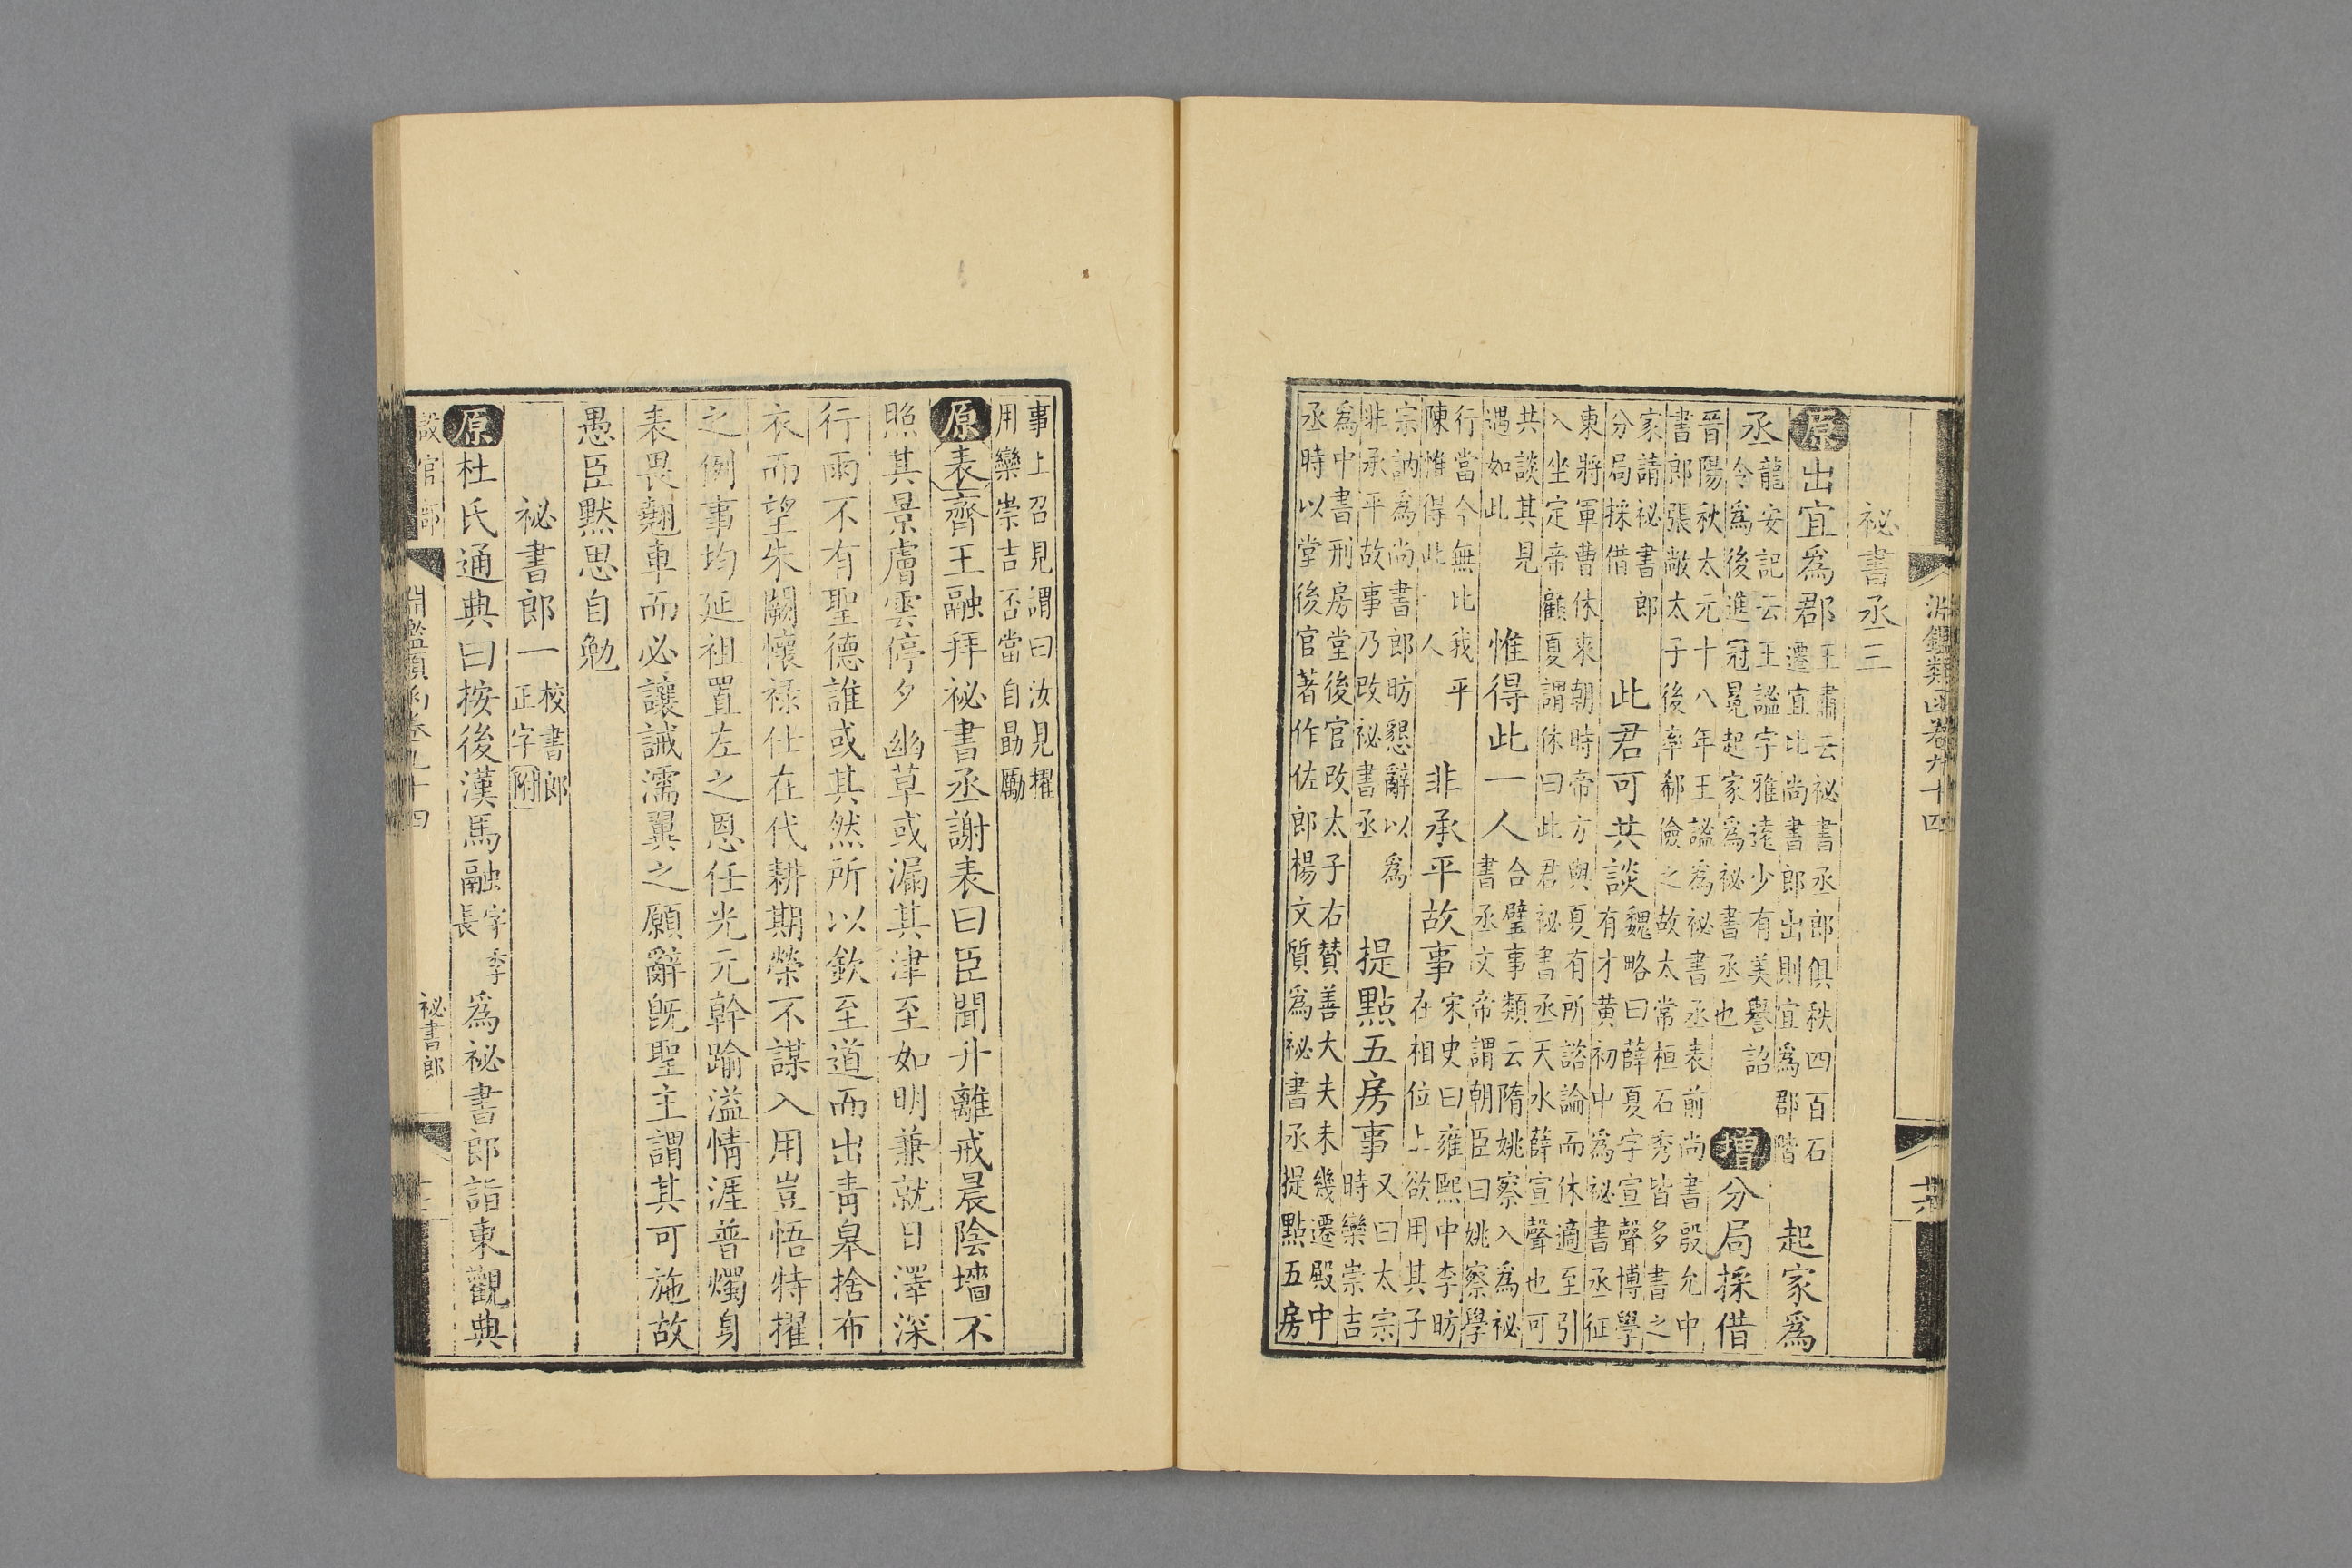 淵鑑類函卷九十四
祕書丞三
原出宜爲郡王肅云祕書丞郎俱秩四百石遷宜比尚書郎出則宜爲郡階起家爲
丞龍安記云王謐字雅遠少有美譽詔令爲後進冠冕起家爲祕書丞也増分局採借
晉陽秋太元十八年王謐爲祕書丞表前尚書殷允中書郎張敞太子後率郗儉之故太常桓石秀皆多書之
家請祕書郎分局採借此君可共談魏略曰薛夏字宣聲博學有才黄初中爲祕書丞征
東將軍曹休來朝時帝方與夏有所諮論而休適至引入坐定帝顧夏謂休曰此君祕書丞天水薛宣聲也可
共談其見遇如此惟得此一人合璧事類云隋姚察入爲祕書丞文帝謂朝臣曰姚察學
行當今無比我平陳惟得此一人非承平故事宋史曰雍熙中李昉在相位上欲用其子
宗訥爲尚書郎昉懇辭以爲非承平故事乃改祕書丞提點五房事又曰太宗時欒崇吉
爲中書刑房堂後官改太子右賛善大夫未幾遷殿中丞時以堂後官著作佐郎楊文質爲祕書丞提點五房
事上召見謂曰汝見擢用欒崇吉否當自勗勵
原表齊王融拜祕書丞謝表曰臣聞升離戒晨陰墻不
照其景膚雲停夕幽草或漏其津至如明兼就日澤深
行雨不有聖德誰或其然所以欽至道而出青皋捨布
衣而望朱闕懷祿仕在代耕期榮不謀入用豈悟特擢
之例事均延祖置左之恩任光元幹踰溢情涯普燭身
表畏翹車而必讓誡濡翼之願辭旣聖主謂其可施故
愚臣黙思自勉
祕書郎一校書郎正字附
原杜氏通典曰按後漢馬融字季長爲祕書郎詣東觀典
設官部 淵鑑類函卷九十四 祕書郎